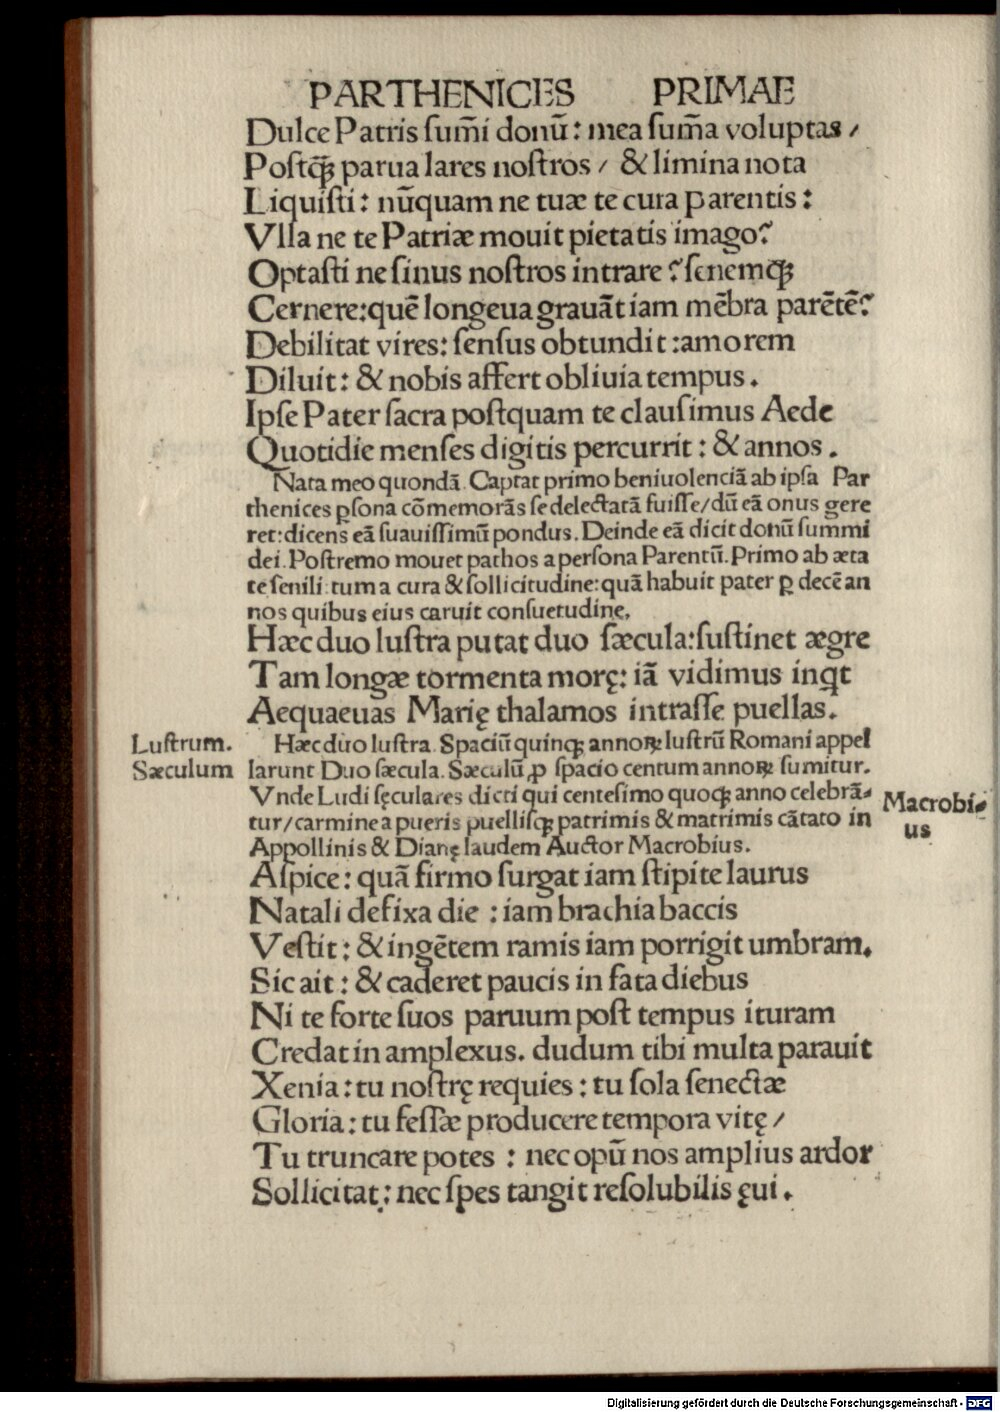 PARTHENICES PRIMAE
Dulce Patris sum̃i donũ: mea sum̃a voluptas /
Postq̃ꝫ parua lares nostros / & limina nota
Liquisti: nũquam ne tuæ te cura parentis:
Vlla ne te Patriæ mouit pietatis imago?
Optasti ne sinus nostros intrare? senemqꝫ
Cernere: quē longeua grauāt iam mēbra parētē?
Debilitat vires: sensus obtundit: amorem
Diluit: & nobis affert obliuia tempus.
Ipse Pater sacra postquam te clausimus Aede
Quotidie menses digitis percurrit: & annos.
Nata meo quondā. Captat primo beniuolenciā ab ipsa Par
thenices ꝑsona cōmemorās se delectatā fuisse/dũ eā onus gere
ret: dicens eā suauissimũ pondus. Deinde eā dicit donũ summi
dei. Postremo mouet pathos a persona Parentũ. Primo ab æta
te senili: tum a cura & sollicitudine: quā habuit pater ꝑ decē an
nos quibus eius caruit consuetudine.
Hæc duo lustra putat duo sæcula: sustinet ægre
Tam longæ tormenta morę: iā vidimus inqt
Aequaeuas Marię thalamos intrasse puellas.
Lustrum. Hæc duo lustra. Spaciũ quinqꝫ annoꝝ lustrũ Romani appel
Sæculum larunt Duo sæcula. Sæculũ ꝓ spacio centum annoꝝ sumitur.
Vnde Ludi sęculares dicti qui centesimo quoqꝫ anno celebrā-
tur/carmine a pueris puellisqꝫ patrimis & matrimis cātato in
Macrobi-
us
Appollinis & Dianę laudem Auctor Macrobius.
Aspice: quā firmo surgat iam stipite laurus
Natali defixa die: iam brachia baccis
Vestit: & ingētem ramis iam porrigit umbram.
Sic ait: & caderet paucis in fata diebus
Ni te forte suos paruum post tempus ituram
Credat in amplexus. dudum tibi multa parauit
Xenia: tu nostrę requies: tu sola senectæ
Gloria: tu fessæ producere tempora vitę /
Tu truncare potes: nec opũ nos amplius ardor
Sollicitat: nec spes tangit resolubilis ęui.
Digitalisierung gefördert durch die Deutsche Forschungsgemeinschaft - DFG